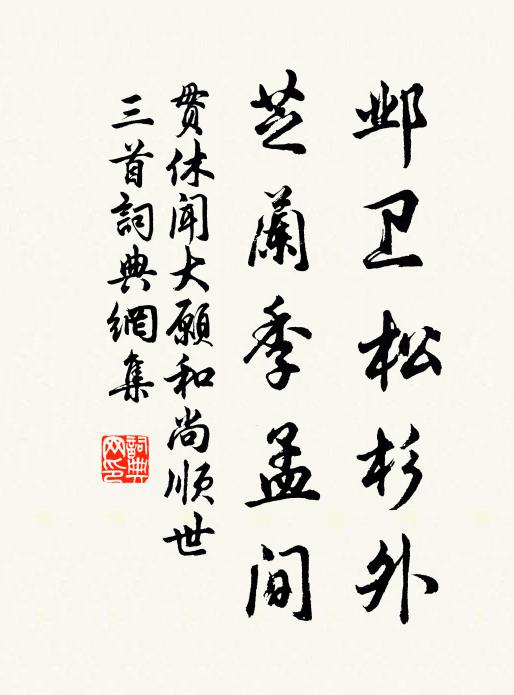 邺卫松杉外
芝蘭季孟间
贯休闻大願和尚顺世
三首詞典網集
詞典网印